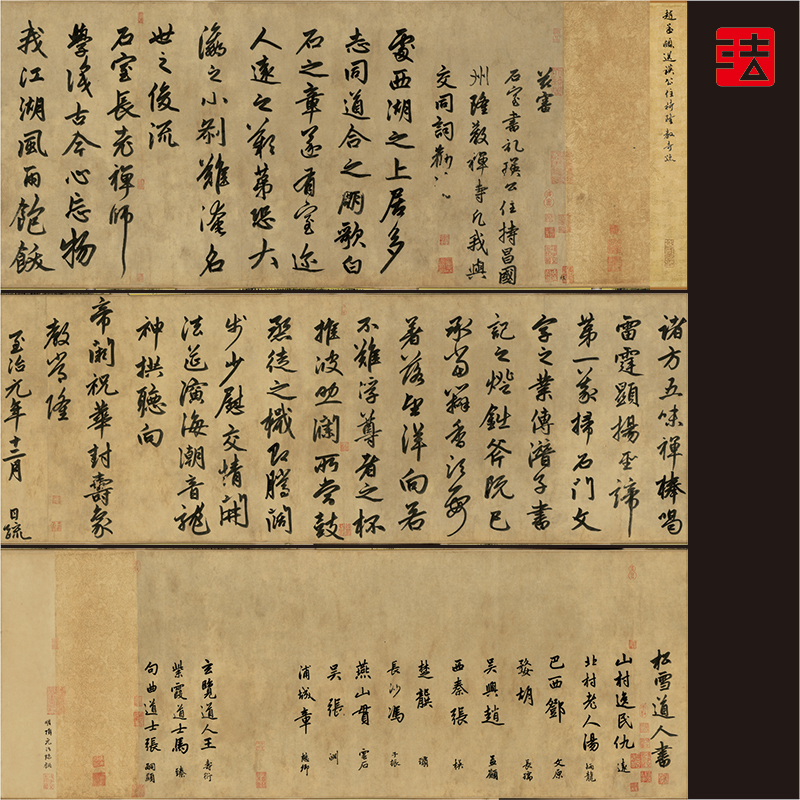 法
趙孟頫送瑛公住持隆教寺疏
茲審
石室書記瑛公住持昌國
州隆教禪寺凡我與
交同詞勸
處西湖之上居多
志同道合之朋歌白
石之章遂有室迩
人遠之歎第恐大
瀛之小刹難淹名
世之俊流
石室長老禪師
學淺古今心忘物
我江湖風雨飽飫
諸方五味禪棒喝
雷霆顯揚聖諦
第一義掃石門文
字之業傳潛子書
記之燈鈯斧既已
承當瓣香須要
著落望洋向若
不難浮尊者之杯
推波助瀾所當鼓
烝徒之檝即騰闊
步少慰交情開
法筵演海潮音龍
神拱聽向
帝闕祝華封壽象
教常隆
至治元年十二月 日疏
松雪道人書
山村逸民仇遠
北村老人湯炳龍
巴西鄧文原
婺胡長孺
吳興趙孟頫
西秦張楧
楚龔璛
長沙馮子振
燕山貫雲石
吳張淵
浦城章懋卿
玄覽道人王壽衍
紫霞道士馬臻
句曲道士張嗣顯